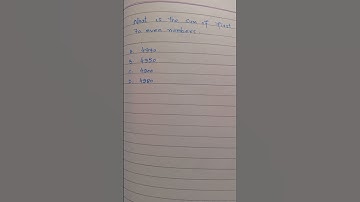 What is the sum of first
70 even numbers
A. 4970
B. 4950
C. 4900
D. 4960